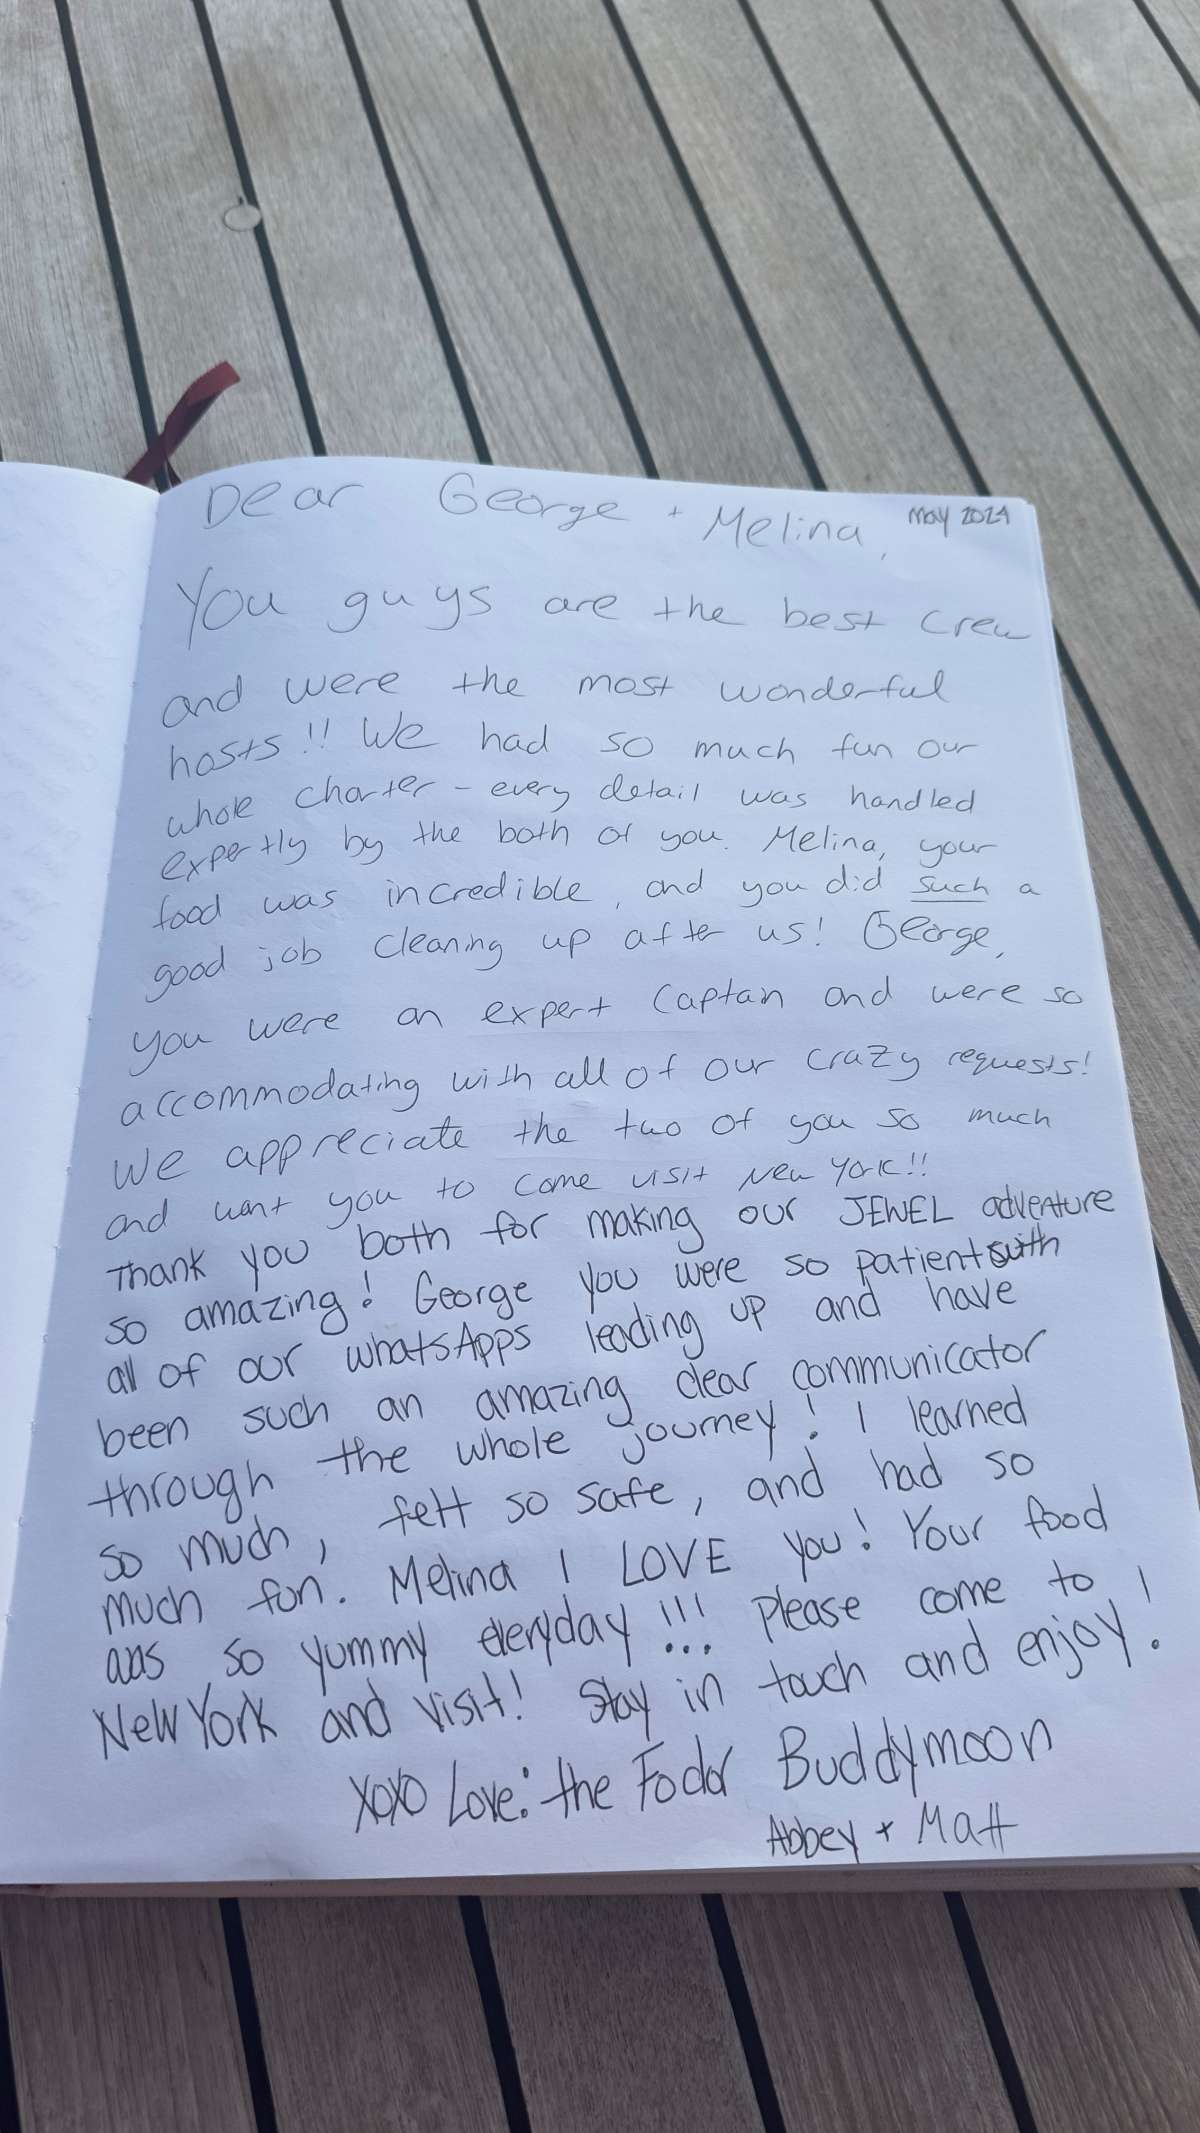 Dear George + Melina, May 2024
You guys are the best crew
and were the most wonderful
hosts!! We had so much fun our
whole charter - every detail was handled
expertly by the both of you. Melina, your
food was incredible, and you did such a
good job cleaning up after us! George,
you were an expert Captain and were so
accommodating with all of our crazy requests!
We appreciate the two of you so much
and want you to come visit New York!!
Thank you both for making our JEWEL adventure
so amazing! George you were so patient with
all of our whatsApps leading up and have
been such an amazing clear communicator
through the whole journey! I learned
so much, felt so safe, and had so
much fun. Melina I LOVE you! Your food
was so yummy everyday!!! Please come to
New York and visit! Stay in touch and enjoy!
XOXO Love: the Fodor Buddymoon
Abbey + Matt